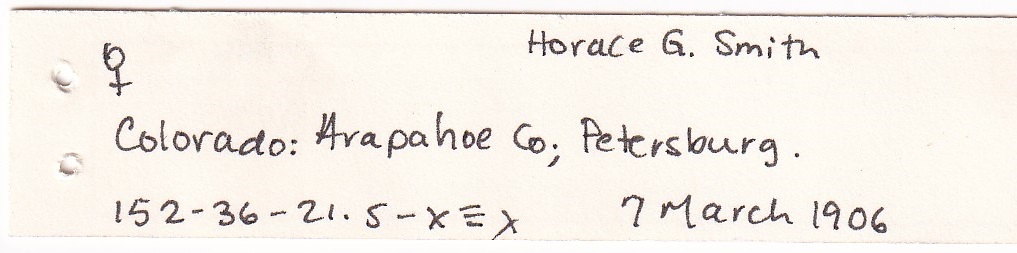 Horace G. Smith
♀
Colorado: Arapahoe Co; Petersburg.
152-36-21.5-x≡x 7 March 1906